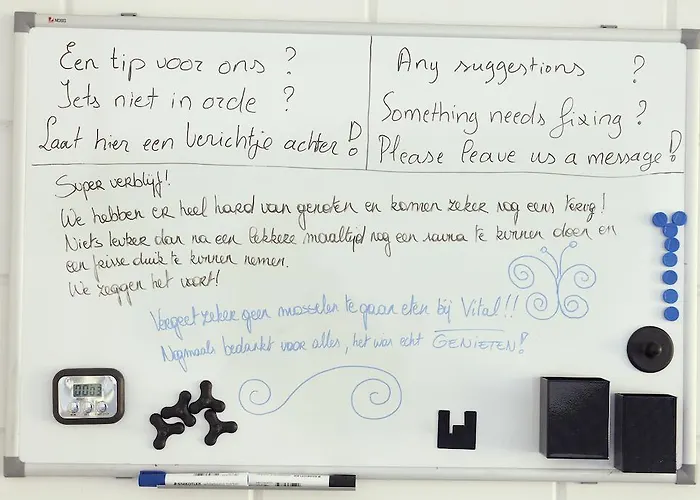 NOBO
Een tip voor ons ?
Iets niet in orde ?
Laat hier een berichtje achter !
Any suggestions ?
Something needs fixing ?
Please leave us a message !
Super verblijf!
We hebben er heel hard van genoten en komen zeker nog eens terug!
Niets leuker dan na een lekkere maaltijd nog een sauna te kunnen doen en
een frisse duik te kunnen nemen.
We zeggen het voort!
Vergeet zeker geen mosselen te gaan eten bij Vital!!
Nogmaals bedankt voor alles, het was echt GENIETEN!